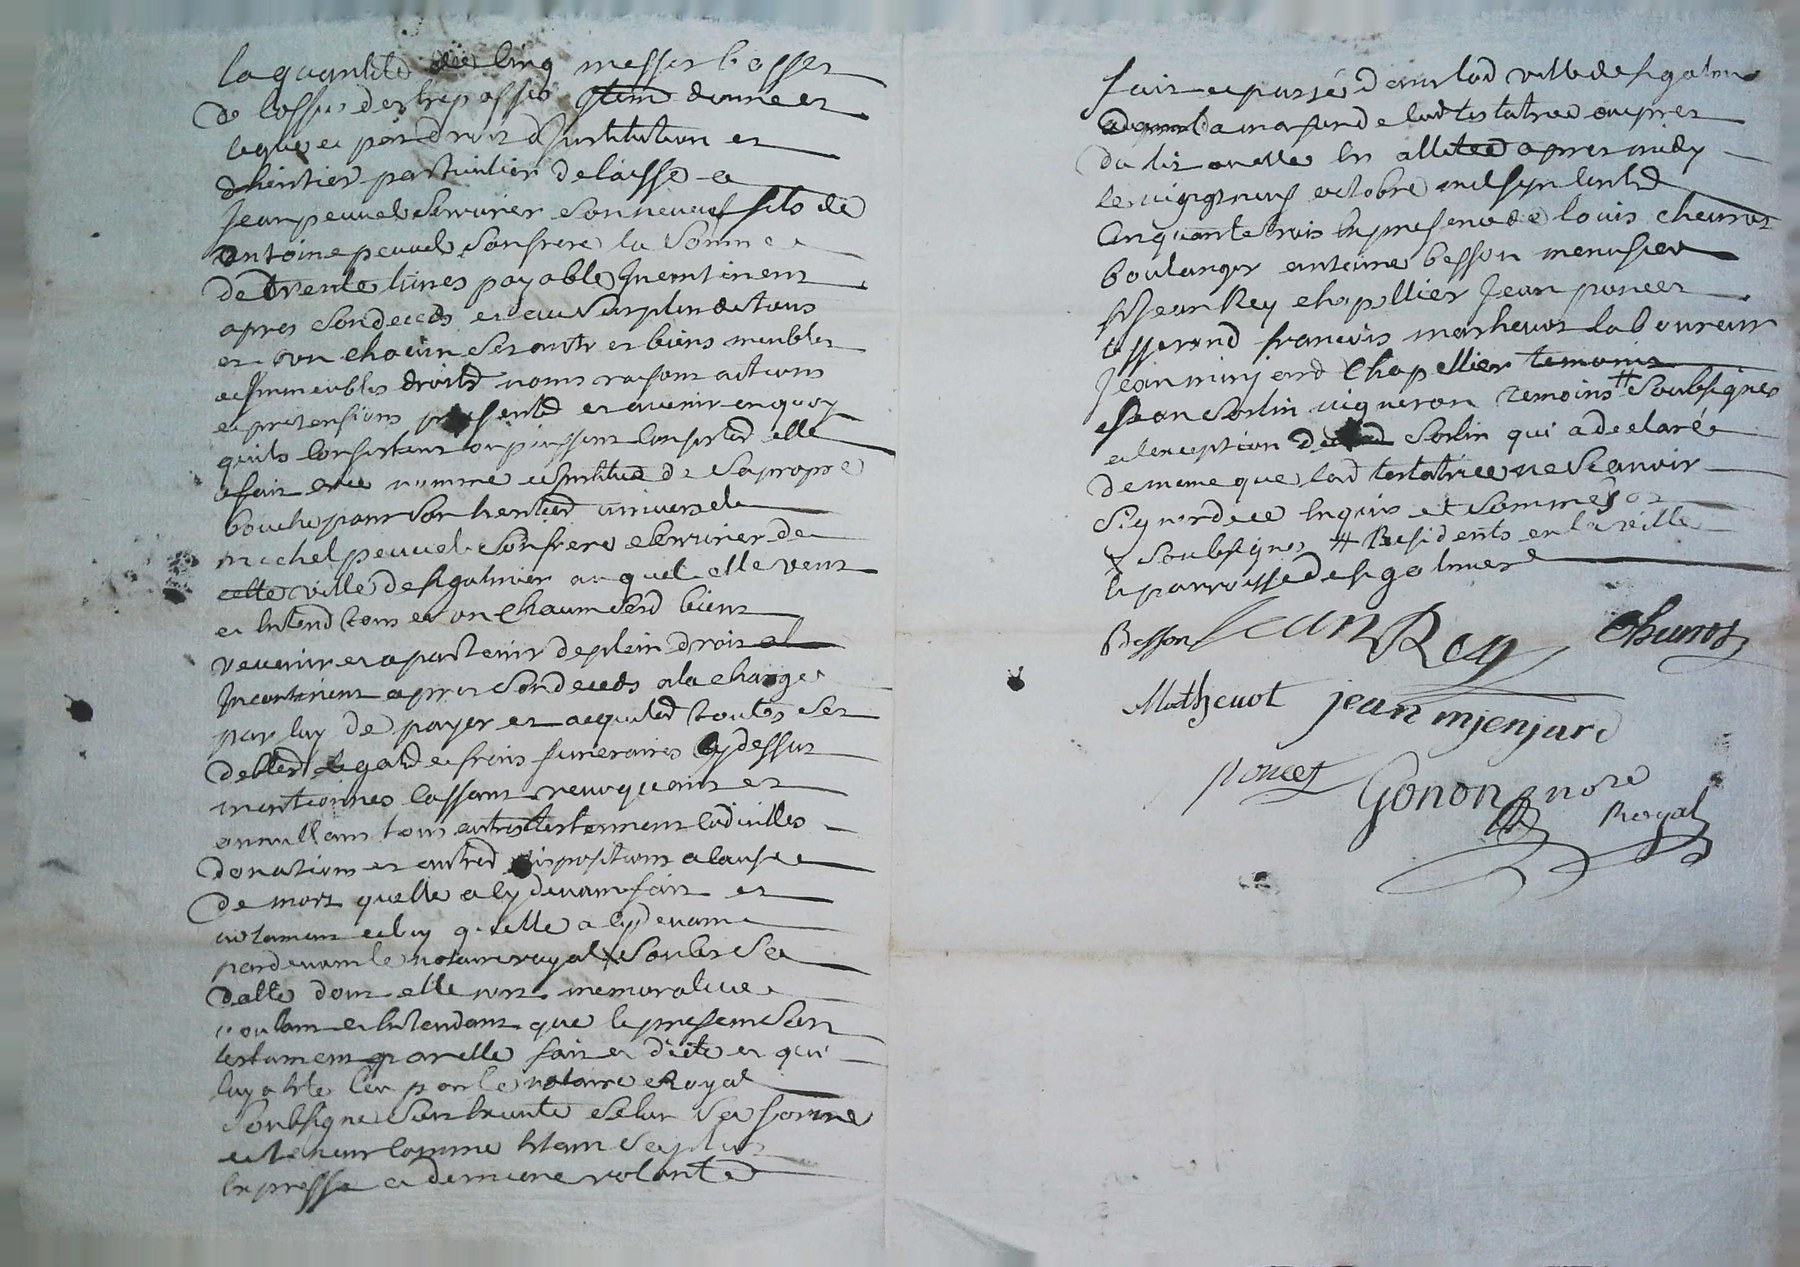 la quantité de cinq messes basses
de l'offise des trepassés Item donne et
legue et par droit d'Institution et
d'heritier particulier delaisse a
Jean peuvel serrurier son neveu fils de
antoine peuvel son frere la somme
de trente livres payable Incontinent
apres son deceds et au surplus de tous
et un chacun ses autres biens meubles
et Immeubles droits noms raisons actions
et pretensions presents et avenir en quoy
quils consistent ou puissent consister elle
a fait cree nommé et Institué de sa propre
bouche pour son heritier universel
michel peuvel son frere serrurier de
cette ville de st galmier auquel elle veut
et Entend tous et un chacun ses biens
venir et apartenir de plein droit
Incontinent apres son deceds a la charge
par luy de payer et acquiter toutes ses
dettes legats et frais funeraires cy dessus
mentionnés cassant revoquant et
annullant tous autres testaments codicilles
donations et autres dispositions a cause
de mort quelle a cy devant fait et
notament celuy quelle a cy devant
pardevant le notaire royal X soubs sa
datte dont elle nest memorative
voulant et Entendant que le present son
testament par elle fait et dicté et qui
luy a été leu par le notaire Royal
soubsigné soit Executé selon sa forme
et teneur comme Etant sa plus
Expresse et derniere volonté
fait et passé dans lad ville de st galmier
a maison de lad testatrice aupres
du lit ou elle Est allitée apres midy
le vingt neuf octobre mil sept cents
cinquante trois En presence de louis chevrot
boulanger antoine besson menusier
sr Jean Rey chapellier Jean poncet
tisserand francois matheuot laboureur
Jean minjard Chapellier temoins
Jean sorlin vigneron temoins # soubsignés
a l'exception dud sorlin qui a declaré
de meme que lad testatrice ne scavoir
signer de ce Enquis et sommés
X soubsignes # Residents en la ville
et parroisse de st golmier
Besson Jean Rey Cheurot
Matheuot jean mjenjard
poncet Gonon nore
Royal